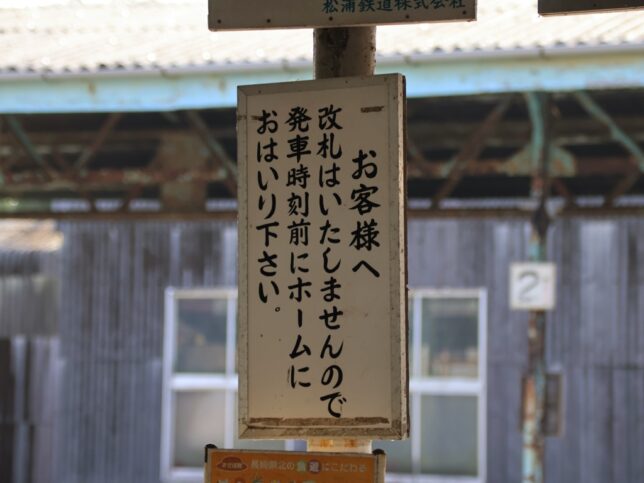 松浦鉄道株式会社
お客様へ
改札はいたしませんので
発車時刻前にホームに
おはいり下さい。
2